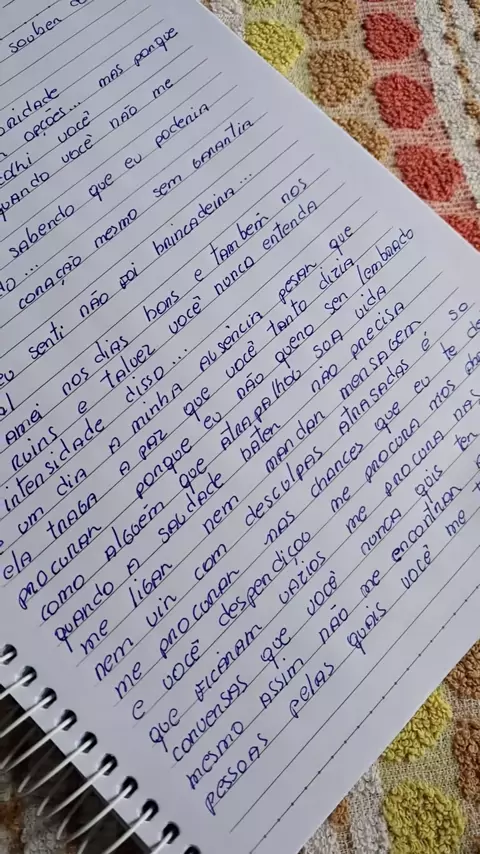 souber
oridade
opções... mas porque
colhi você
quando você não me
sabendo que eu poderia
coração mesmo sem garantia
eu senti não foi brincadeira...
amei nos dias bons e também nos
ruins e talvez você nunca entenda
intensidade disso...
e um dia a minha ausência pesar que
ela traga a paz que você tanto dizia
procurar porque eu não quero ser lembrado
como alguém que atrapalhou sua vida
quando a saudade bater não precisa
me ligar nem mandar mensagem
nem vir com desculpas atrasadas é so
me procurar nas chances que eu te de
e você despendiçou me procura nos abr
que ficaram vazios me procura nas
conversas que você nunca quis ter
mesmo assim não me encontrar
pessoas pelas quais você me t